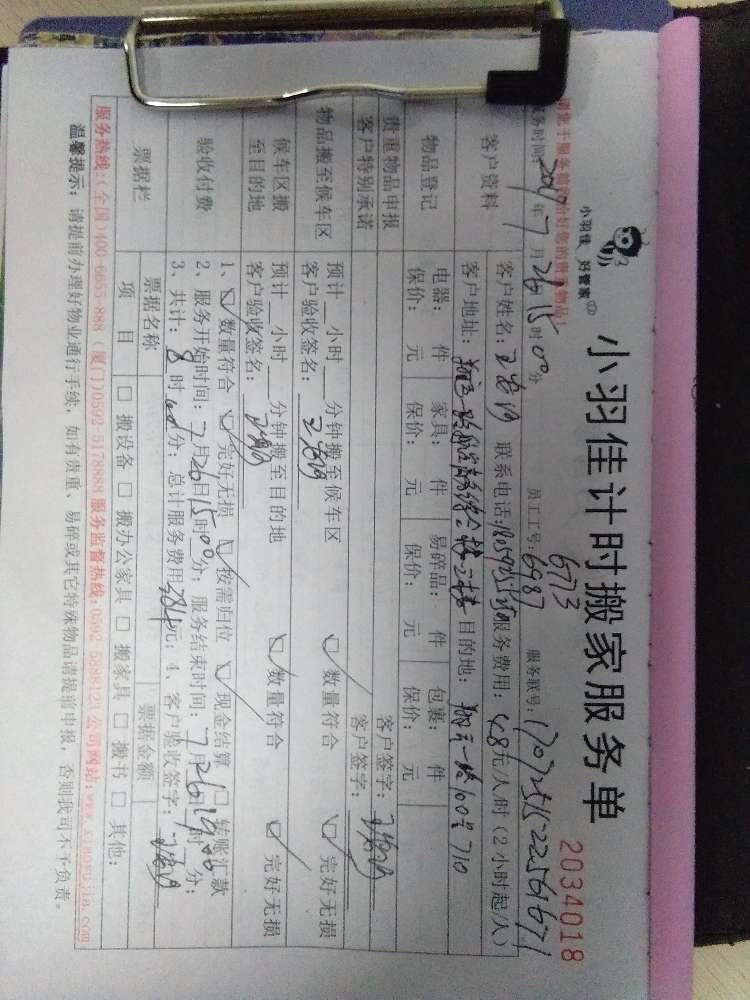 小羽佳 好管家
小羽佳计时搬家服务单
2034018
年7月26日15时00分 员工工号: 6773 6987 服务联号: 170725152256167
客户资料
客户姓名: 联系电话: 服务费用: 48元/人/时(2小时起/人)
客户地址: 目的地: 100号710
物品登记
电器: 件 家具: 件 易碎品: 件 包裹: 件
保价: 元 保价: 元 保价: 元 保价: 元
贵重物品申报 客户签字:
客户特别承诺 客户签字:
物品搬至候车区
预计 小时 分钟搬至候车区 数量符合 完好无损
客户验收签名:
候车区搬至目的地
预计 小时 分钟搬至目的地 数量符合 完好无损
客户验收签名:
验收付费
1、数量符合 完好无损 按需归位 现金结算 转账汇款
2、服务开始时间: 7月26日15时00分; 服务结束时间: 7月26日19时00分;
3、共计: 8时00分; 总计服务费用384元; 4、客户验收签字:
票据栏
票据名称 票据金额
项目 搬设备 搬办公家具 搬家具 搬书 其他:
服务热线:(全国)400-6655-888 (厦门)0592-5178888 服务监督热线:0592-5888123 公司网站:www.xiaoyujia.com
温馨提示: 请提前办理好物业通行手续, 如有贵重、易碎或其它特殊物品请提前申报, 否则我司不予负责。